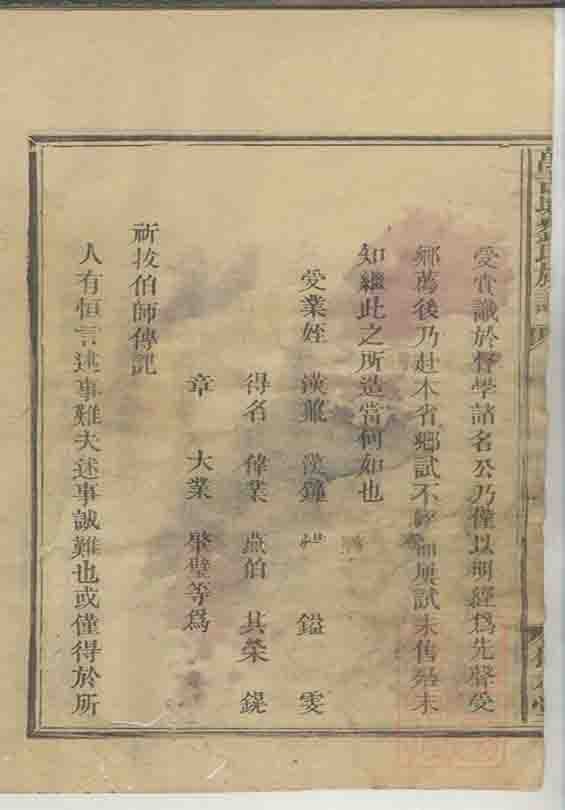 受賞識於督學諸名公乃僅以明經爲先聲受
鄉薦後乃赴本省鄉試不 屢試未售 未
知繼此之所造當何如也
受業姪 漢 漢鐘 鎰 雯
得名 偉業 燕伯 其榮 鐃
章 大業 聚璧等爲
祈拔伯師傳記
人有恒言述事難夫述事誠難也或僅得於所